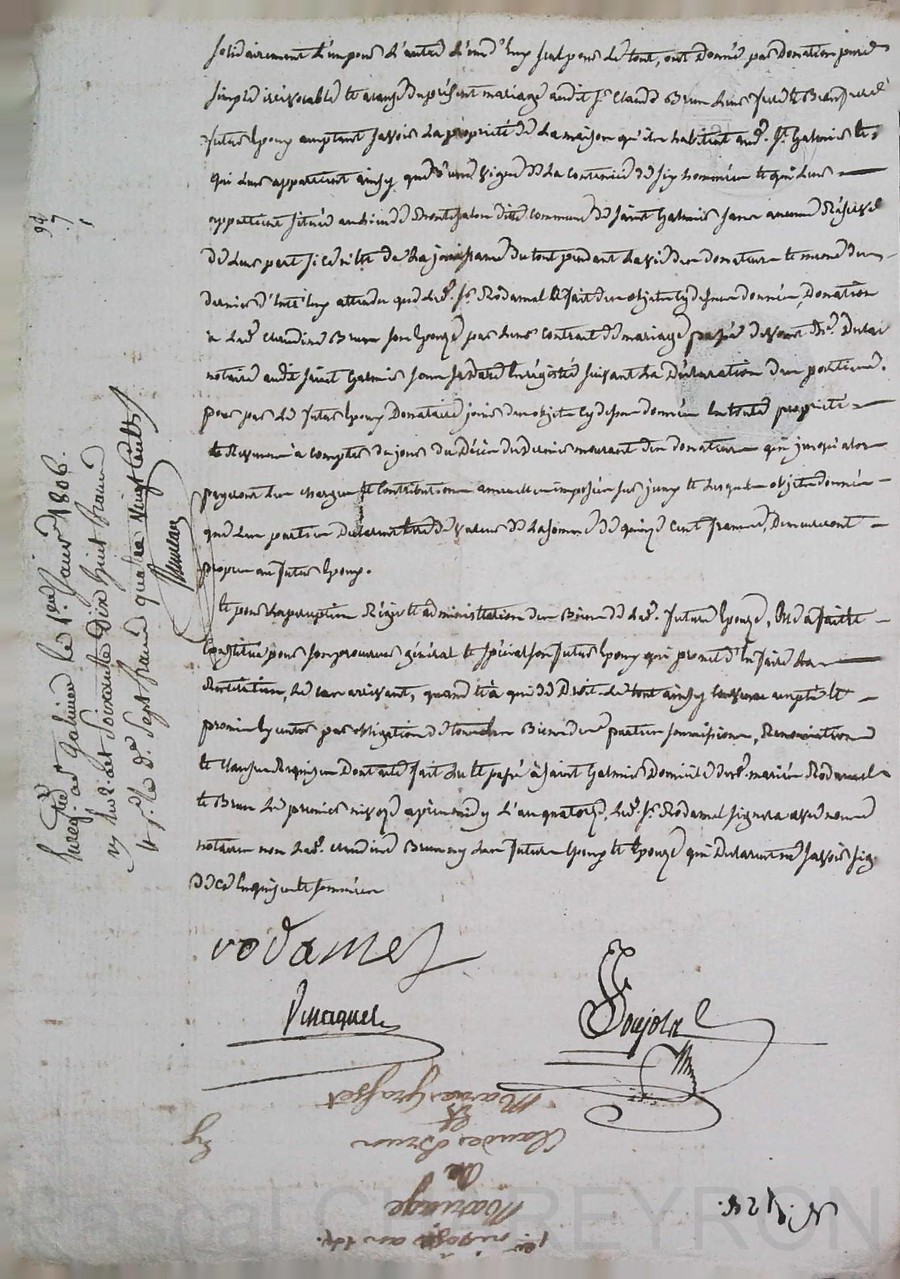 solidairement l'un pour l'autre l'un d'eux seul pour le tout, ont donné par Donation pure
simple irrévocable et avant du présent mariage audit Sr. Claude Brun leur
futur Epoux acceptant savoir la propriété de la maison qu'ils habitent aud. St. Galmier et
qui leur appartient ainsy que d'une vigne de la contenue de six et qui leur
appartient située au dite commune de saint Galmier sans aucune Réserve
de leur part si ce n'est de la jouissance du tout pendant la vie des donateurs et même du
dernier d'entr'eux attendu que led. Sr. Rodamel a fait des objets cy dessus donnés, Donation
à lad. Claudine Brun son Epouse par leur contrat de mariage passé devant Me.
notaire audit saint Galmier sous sa date Enrégistré suivant la Déclaration des parties.
pour par le futur Epoux Donataire jouir des objets cy dessus donnés En toute propriété
et à compter du jour du Décès du Dernier mourant des donateurs qui jusqu'alors
payeront les charges et Contributions annuelles imposées sur iceux et lesquels objets donnés
que les parties Déclarent être de valeur de la somme de quinze cent francs, Demeureront
propres au futur Epoux.
Et pour la perception Régie et administration des Biens de lad. future Epouse, Elle a fait et
Constitué pour son procureur général et spécial son futur Epoux qui promet d'En faire la
Restitution, le cas arrivant, quand et à qui de Droit le tout ainsy accepté et
promis par obligation de tous les Biens des parties soumissions, Renonciations
et clauses Requises Dont acte fait lu et passé à saint Galmier Domicile des mariés Rodamel
et Brun le premier nivose après midy l'an quatorze, led. Sr. Rodamel signera avec nous
notaires non lad. Claudine Brun ny les futurs Epoux et Epouse qui Déclarent ne savoir sig.
de ce Enquis et sommés
rodamel
Pinaquel
Soujolas
Enregtré. à St. Galmier le 1er. Janvr 1806.
vo. Reçu Soixante Dix huit francs
et pr. le de. sept francs quatre vingt Cents
94
7
1
1er. nivose an 14e.
Mariage
De
Claude Brun
&
Marie Grasset
Ey
N. 128.
Pascal CHAREYRON